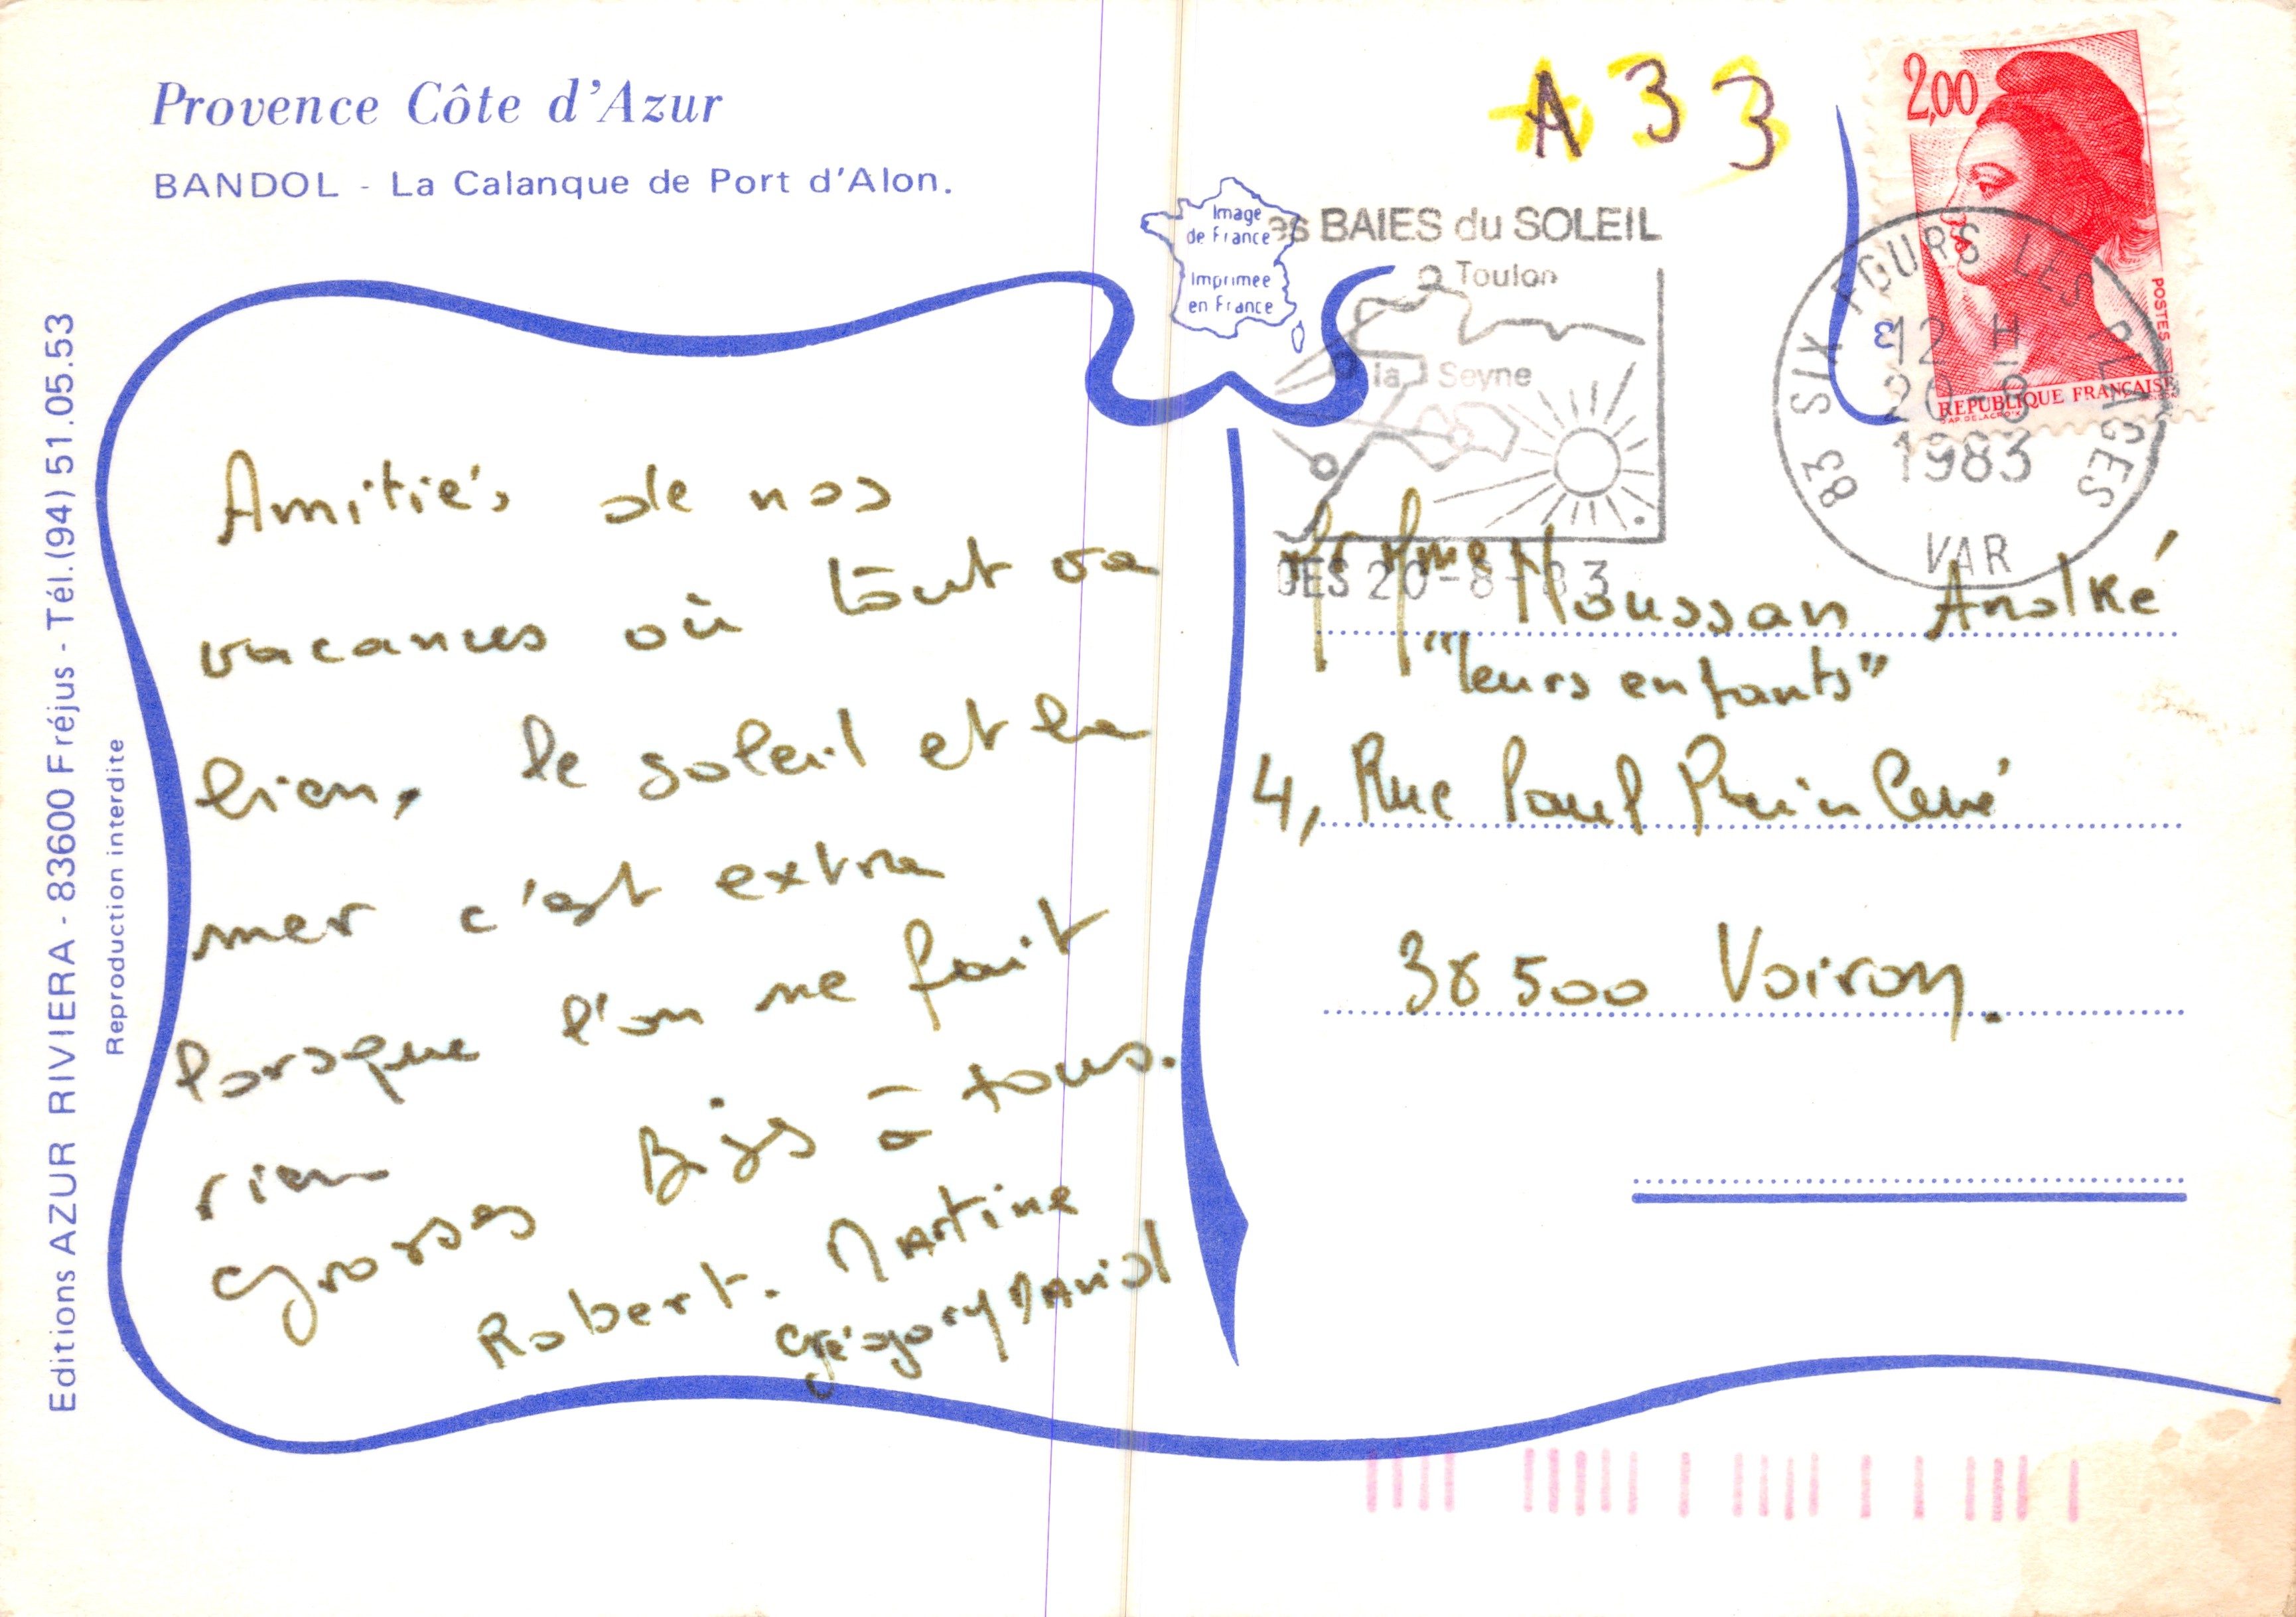 Provence Côte d'Azur
BANDOL - La Calanque de Port d'Alon.
Editions AZUR RIVIERA - 83600 Fréjus - Tél.(94) 51.05.53
Reproduction interdite
Amitiés de nos
vacances où tout va
bien, le soleil et la
mer c'est extra
lorsque l'on ne fait
rien
Grosses Bises à tous.
Robert. Martine
Grégory David
Image
de France
Imprimée
en France
A 3 3
es BAIES du SOLEIL
Toulon
la Seyne
GES 20-8-83
2,00
POSTES
REPUBLIQUE FRANÇAISE
D'AP. DELACROIX
83 SIX FOURS LES PLAGES
12 H
20-8
1983
VAR
Mr Mme Moussan André
"leurs enfants"
4, Rue Paul
38500 Voiron.